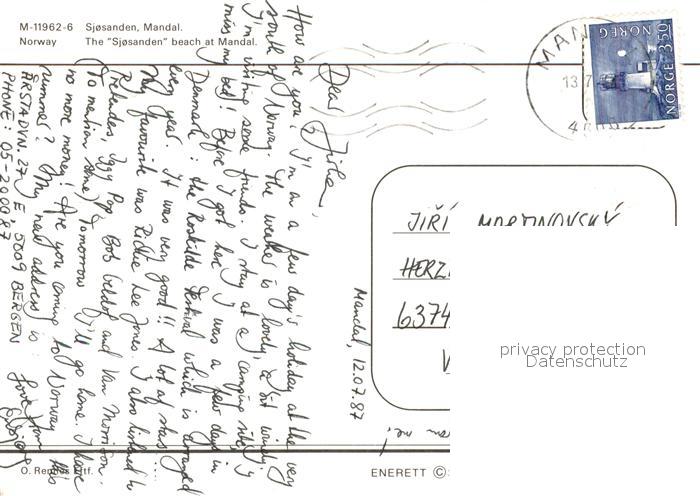 M-11962-6 Sjøsanden, Mandal.
Norway The "Sjøsanden" beach at Mandal.
NORGE 350
NOREG
MAN
13.7
Dear Jirka,
How are you? I'm on a few day's holiday at the very
south of Norway. The weather is lovely, a bit windy.
I'm visiting some friends. I stay at a camping site,
miss my bed! Before I got here I was a few days in
Denmark: the Roskilde Festival which is arranged
every year. It was very good!! A lot of stars....
My favourite was Rickie Lee Jones. I also listened to
Pretenders, Iggy Pop, Bob Geldof and Van Morrison..
(To mention some) Tomorrow I'll go home. I have
no more money! Are you coming to Norway this
summer? My new address is:
ÅRSTADVN. 27 E, 5009 BERGEN
PHONE: 05-200087
Love from
Mandal, 12.07.87
JIŘÍ MARTINOVSKÝ
HERZ
6374
me!
privacy protection
Datenschutz
ENERETT ©